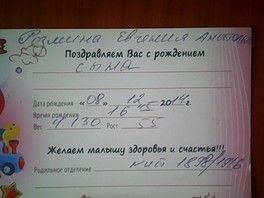 Розмина Евгения Анатольев
Поздравляем Вас с рождением
сына
Дата рождения «08» 12 2014 г.
Время рождения 16 15
Вес 4130 Рост 55
Желаем малышу здоровья и счастья!!!
Родильное отделение 1898/1916